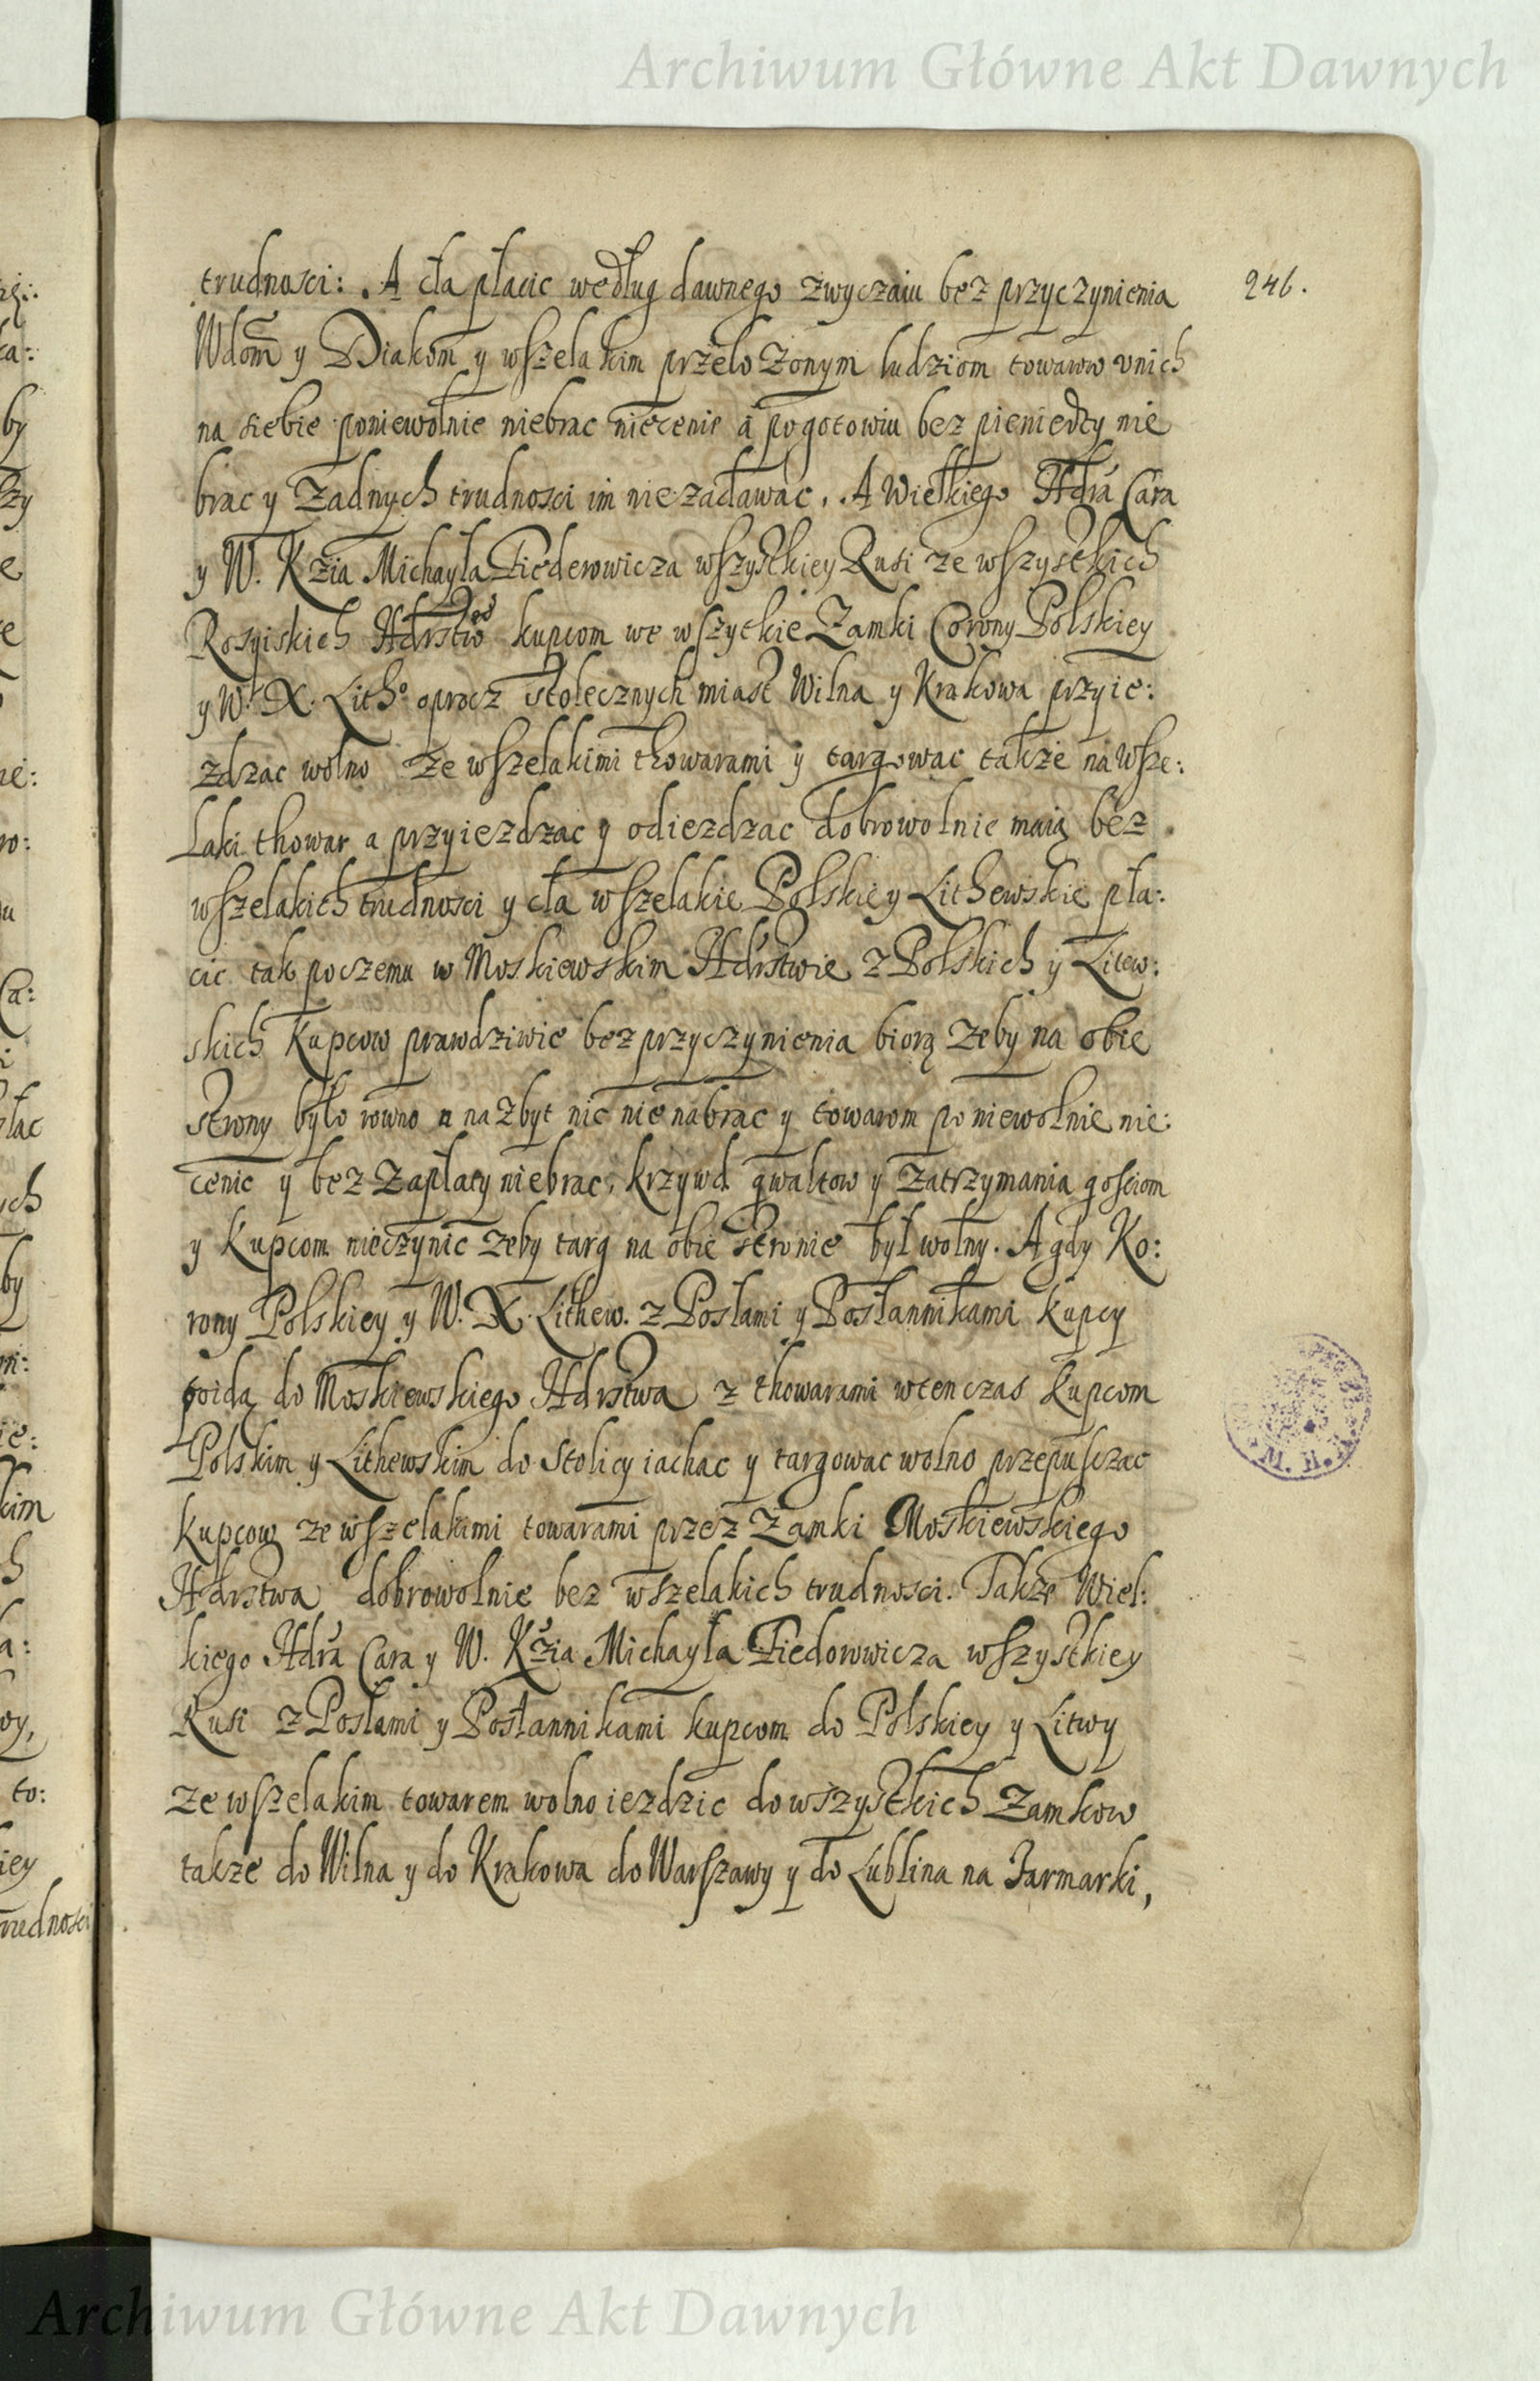 Archiwum Główne Akt Dawnych
246.
trudnosci: A cła płacic według dawnego zwyczaiu bez przyczynienia
Wdom y Diakom y wszelakim przełożonym ludziom towarow v nich
na siebie poniewolnie niebrac niecenic a pogotowiu bez pieniedzy nie
brac y Żadnych trudnosci im niezadawac. A Wielkiego Hdra Cara
y W. Kzia Michayła Fiederowicza wszystkiey Rusi ze wszystkich
Rosyiskich Hdrstw kupcom we wszytkie Zamki Corony Polskiey
y W. X. Litho oprocz stołecznych miast Wilna y Krakowa przyie:
zdzac wolno ze wszelakimi thowarami y targowac także na wsze:
laki thowar a przyiezdzac y odiezdzac dobrowolnie maią bez
wszelakich trudnosci y cła wszelakie Polskie y Lithewskie pła:
cic tak poczemu w Moskiewskim Hdrstwie z Polskich y Litew:
skich Kupcow prawdziwie bez przyczynienia biorą żeby na obie
strony było rowno a nazbyt nic nie nabrac y towarom poniewolnie nie:
cenic y bez Zapłaty niebrac, krzywd gwałtow y zatrzymania gosciom
y Kupcom nieczynic żeby targ na obie stronie był wolny. A gdy Ko:
rony Polskiey y W. X. Lithew. z Posłami y Posłannikami kupcy
poidą do Moskiewskiego Hdrstwa z thowarami wtenczas kupcom
Polskim y Lithewskim do Stolicy iachac y targowac wolno przepusczac
kupcow ze wszelakimi towarami przez Zamki Moskiewskiego
Hdrstwa dobrowolnie bez wszelakich trudnosci. Także Wiel:
kiego Hdra Cara y W. Kzia Michayła Fiedorowicza wszystkiey
Rusi z Posłami y Posłannikami kupcom do Polskiey y Litwy
ze wszelakim towarem wolno iezdzic do wszystkich Zamkow
także do Wilna y do Krakowa do Warszawy y do Lublina na Jarmarki,
M. H.
Archiwum Główne Akt Dawnych